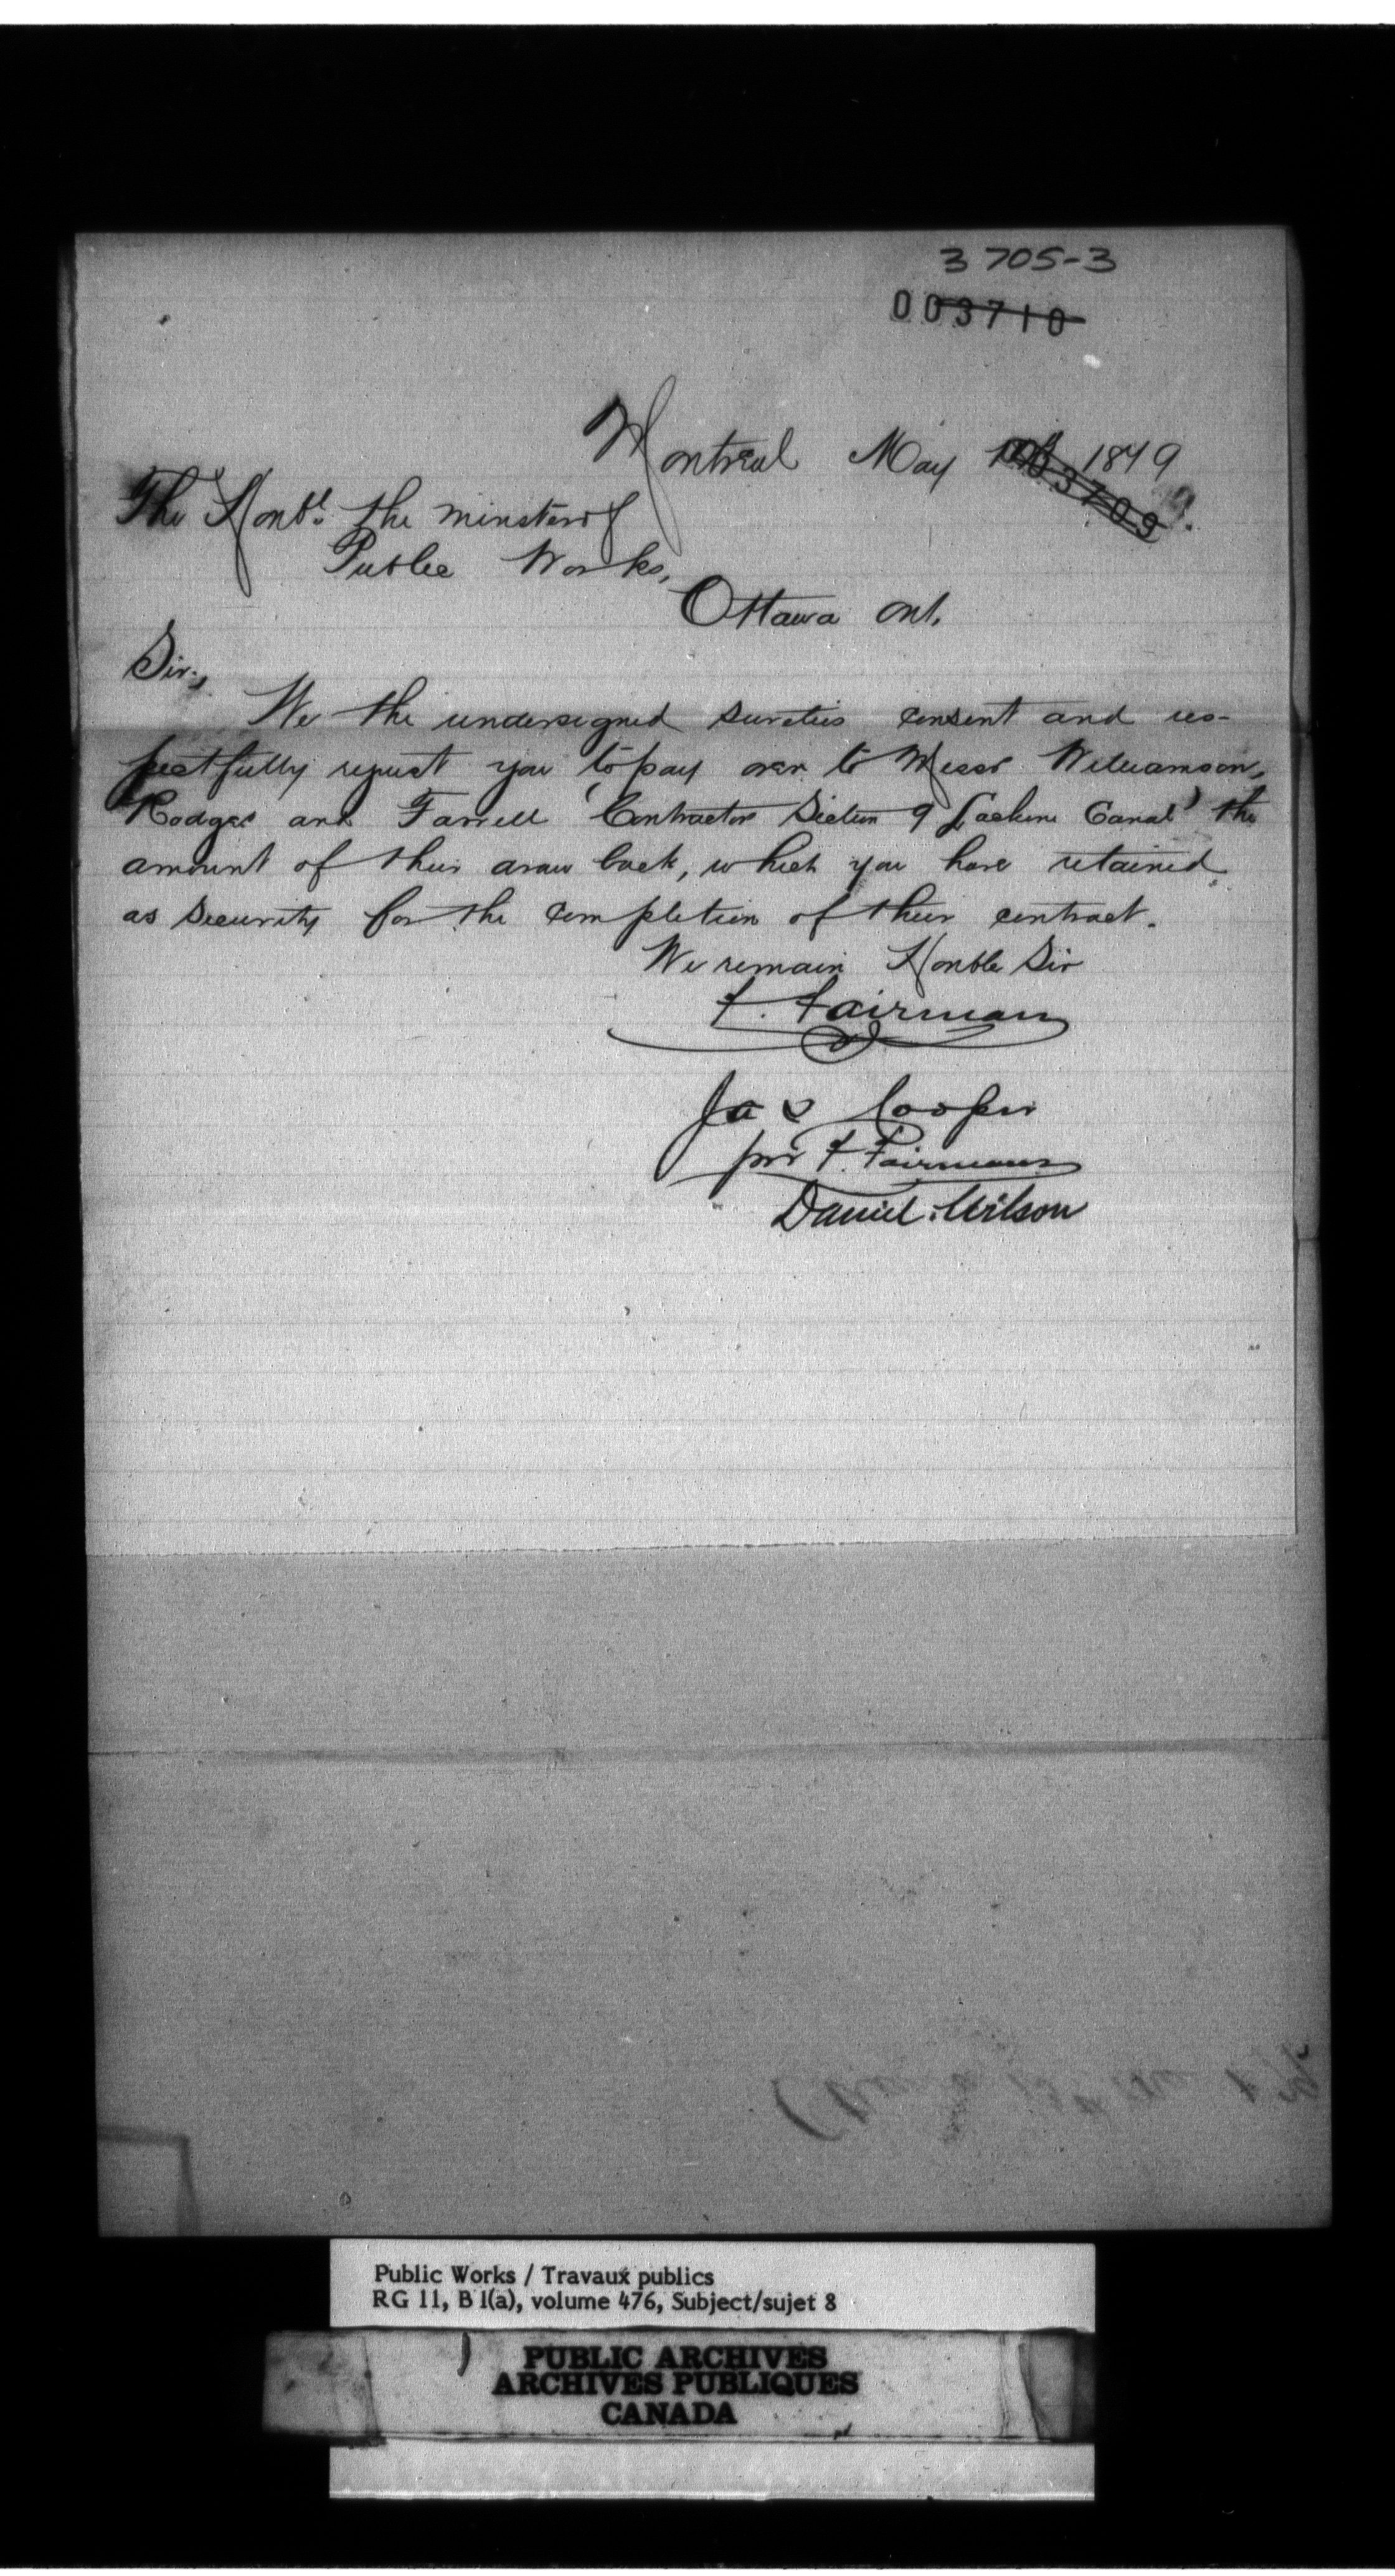 3705-3
003710
Montreal May 1879
003709
The Honbl. the minster of
Public Works,
Ottawa Ont.
Sir,
We the undersigned sureties consent and res-
pectfully request you to pay over to Messrs Williamson,
Rodger and Farrell 'Contractors Section 9 Lachine Canal' the
amount of their draw back, which you have retained
as security for the completion of their contract.
We remain Honble Sir
F. Fairman
Jas Cooper
per F. Fairman
Daniel Wilson
Public Works / Travaux publics
RG 11, B 1(a), volume 476, Subject/sujet 8
PUBLIC ARCHIVES
ARCHIVES PUBLIQUES
CANADA